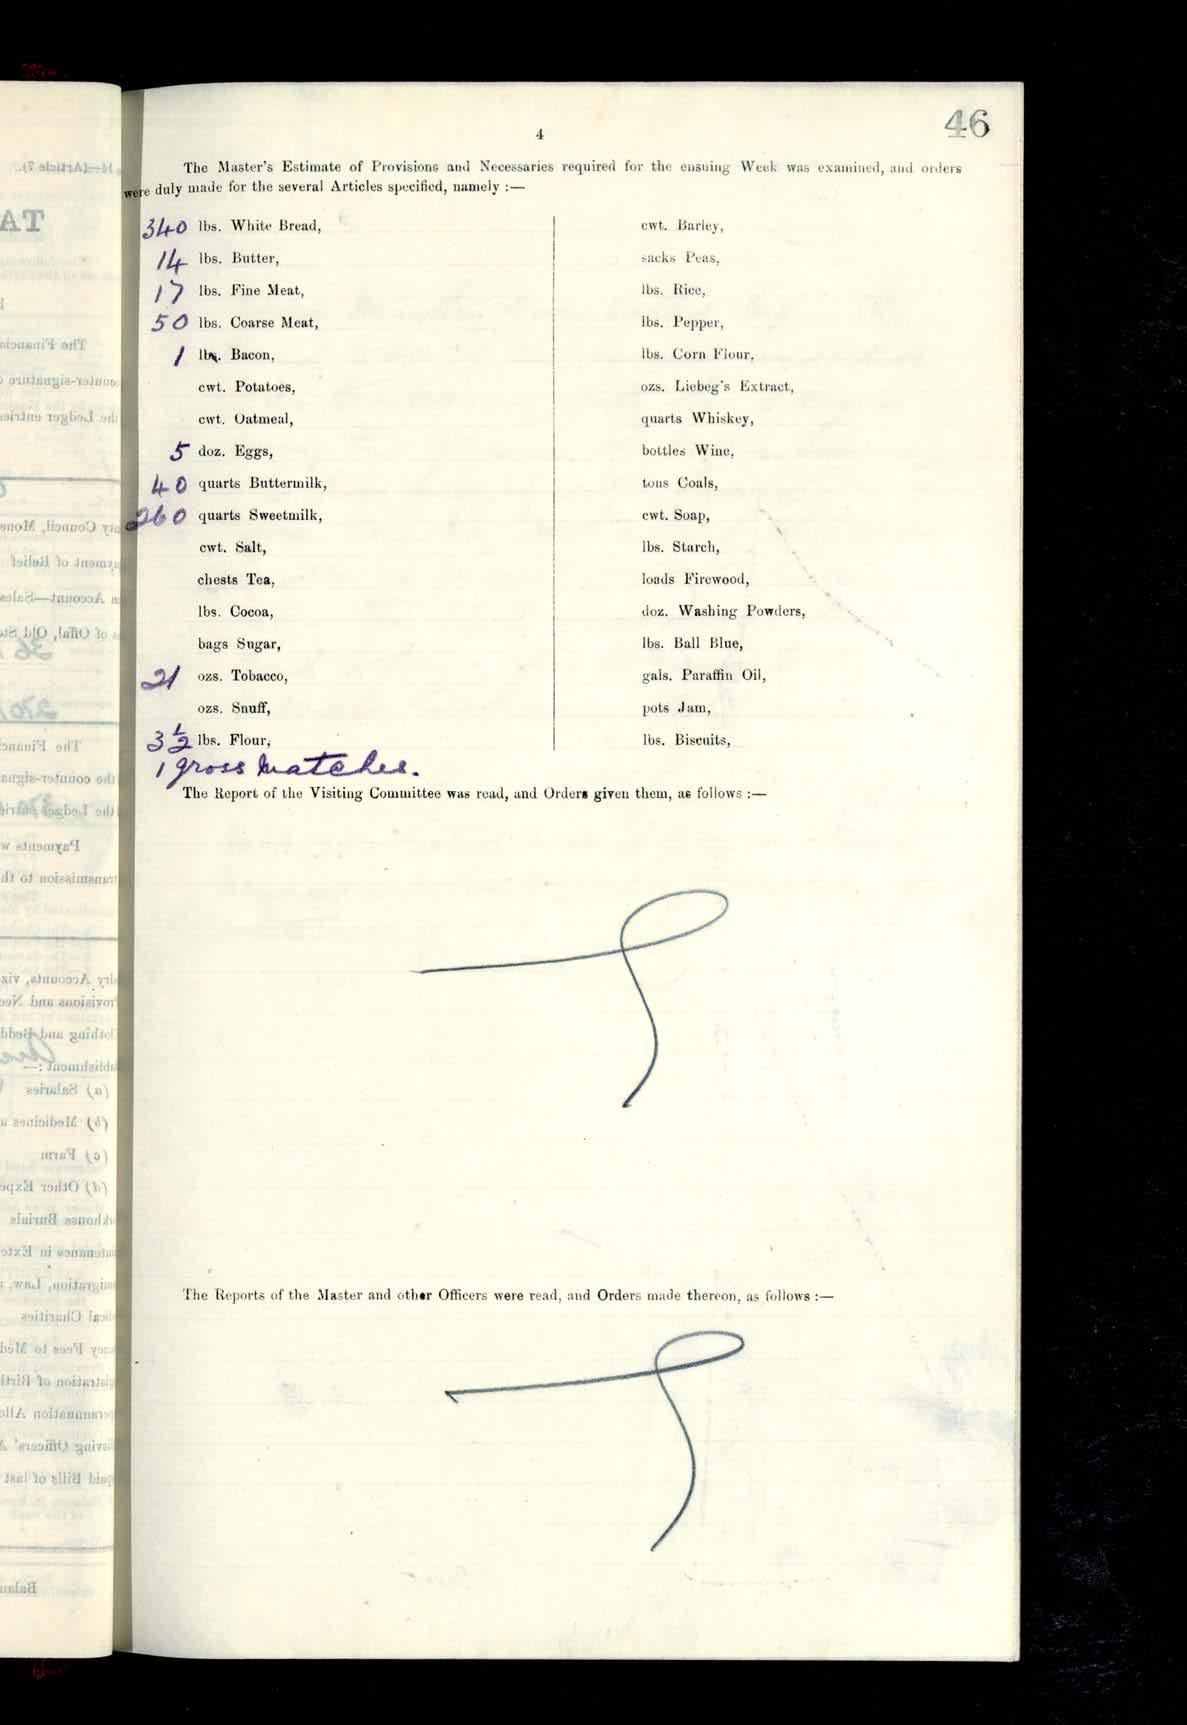 46
4
The Master's Estimate of Provisions and Necessaries required for the ensuing Week was examined, and orders
were duly made for the several Articles specified, namely :—
340 lbs. White Bread,
14 lbs. Butter,
17 lbs. Fine Meat,
50 lbs. Coarse Meat,
1 lb. Bacon,
cwt. Potatoes,
cwt. Oatmeal,
5 doz. Eggs,
40 quarts Buttermilk,
260 quarts Sweetmilk,
cwt. Salt,
chests Tea,
lbs. Cocoa,
bags Sugar,
21 ozs. Tobacco,
ozs. Snuff,
3½ lbs. Flour,
1 gross Matches.
cwt. Barley,
sacks Peas,
lbs. Rice,
lbs. Pepper,
lbs. Corn Flour,
ozs. Liebeg's Extract,
quarts Whiskey,
bottles Wine,
tons Coals,
cwt. Soap,
lbs. Starch,
loads Firewood,
doz. Washing Powders,
lbs. Ball Blue,
gals. Paraffin Oil,
pots Jam,
lbs. Biscuits,
The Report of the Visiting Committee was read, and Orders given them, as follows :—
The Reports of the Master and other Officers were read, and Orders made thereon, as follows :—